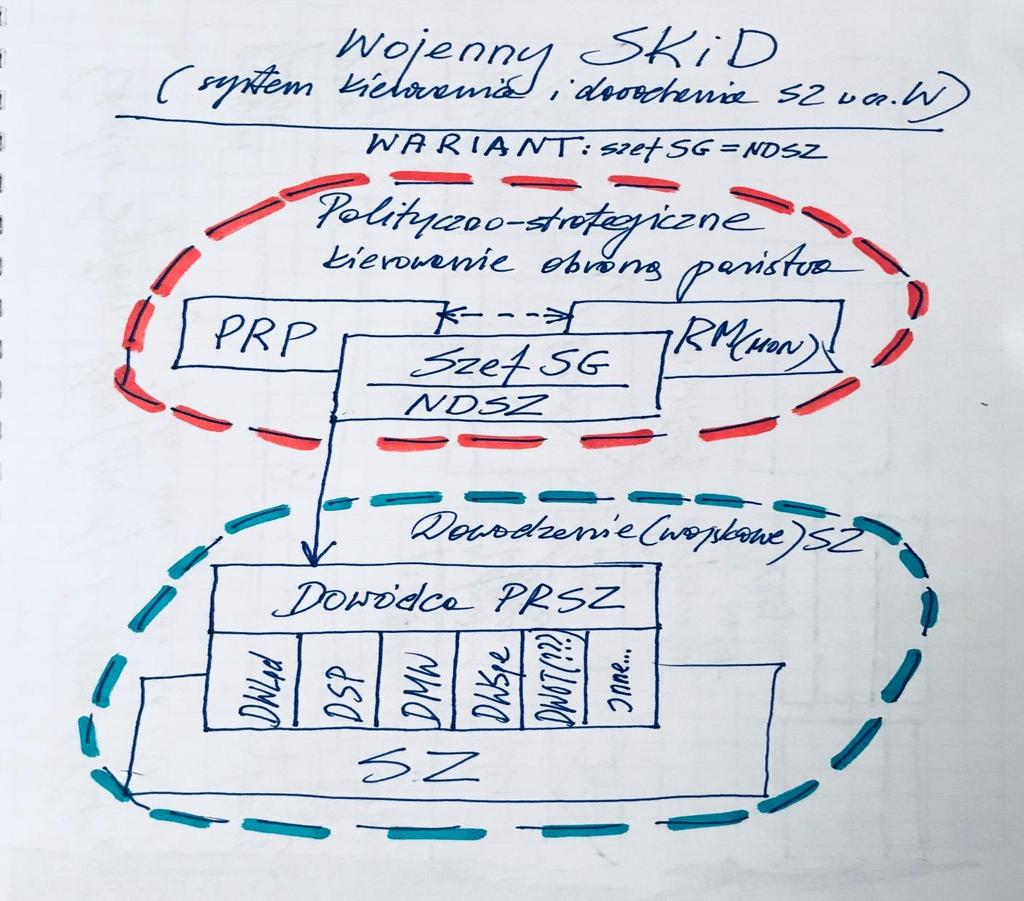 Wojenny SKiD
(system kierowania i dowodzenia SZ w cz. W)
WARIANT: szef SG = NDSZ
Polityczno-strategiczne
kierowanie obroną państwa
PRP
RM (MON)
Szef SG
NDSZ
Dowodzenie (wojskowe) SZ
Dowódca PRSZ
DWLąd
DSP
DMW
DWSpe
DWOT(???)
Inne...
SZ